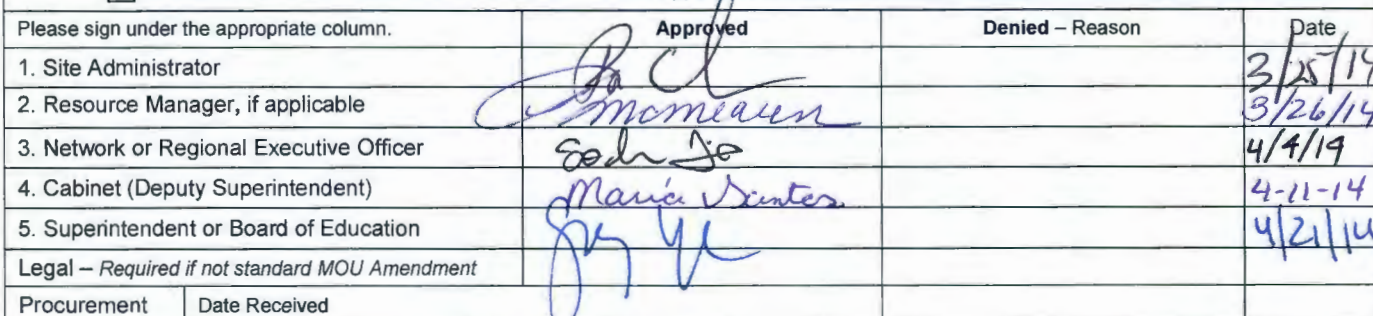 Please sign under the appropriate column. Approved Denied – Reason Date
1. Site Administrator 3/25/14
2. Resource Manager, if applicable 3/26/14
3. Network or Regional Executive Officer 4/4/14
4. Cabinet (Deputy Superintendent) Maria Santos 4-11-14
5. Superintendent or Board of Education 4/21/14
Legal – Required if not standard MOU Amendment
Procurement Date Received